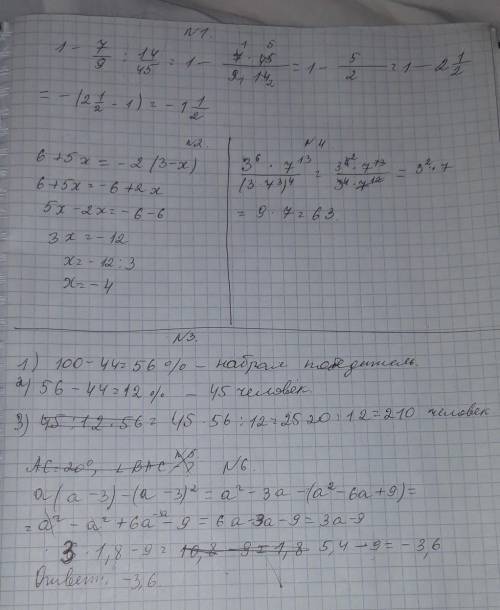 N1.
1 - 7/9 : 14/45 = 1 - 7 · 45 / 9 · 14 = 1 - 5/2 = 1 - 2 1/2
= -(2 1/2 - 1) = -1 1/2
N2.
6 + 5x = -2(3-x)
6 + 5x = -6 + 2x
5x - 2x = -6 - 6
3x = -12
x = -12 : 3
x = -4
N4
3^6 · 7^13 / (3 · 7^3)^4 = 3^6 · 7^13 / 3^4 · 7^12 = 3^2 · 7
= 9 · 7 = 63.
N3.
1) 100 - 44 = 56 % - набрал победитель.
2) 56 - 44 = 12 % - 45 человек.
3) 45 : 12 · 56 = 45 · 56 : 12 = 2520 : 12 = 210 человек
N5
AC = 20°, ∠BAC
N6.
a(a - 3) - (a - 3)² = a² - 3a - (a² - 6a + 9) =
= a² - a² + 6a - 9 = 6a - 3a - 9 = 3a - 9
3 · 1,8 - 9 = 10,8 - 9 = 1,8 5,4 - 9 = -3,6
Ответ: -3,6